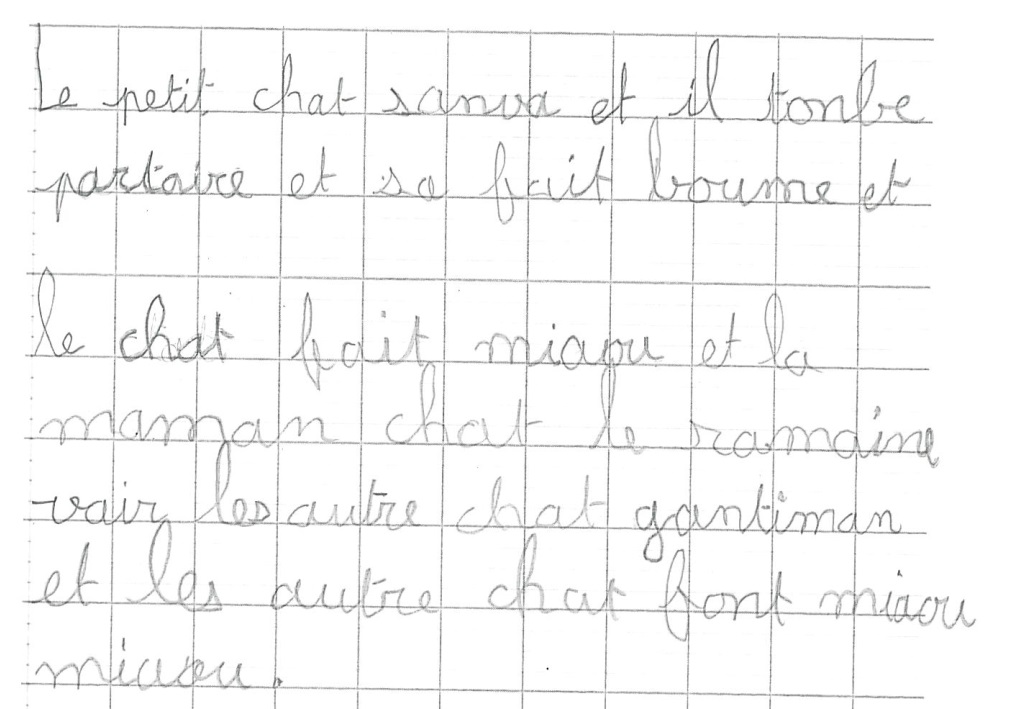 Le petit chat sanva et il tonbe
partaire et sa fait boume et
le chat fait miaou et la
maman chat le ramaine
vair les autre chat gantiman
et les autre chat font miaou
miaou.